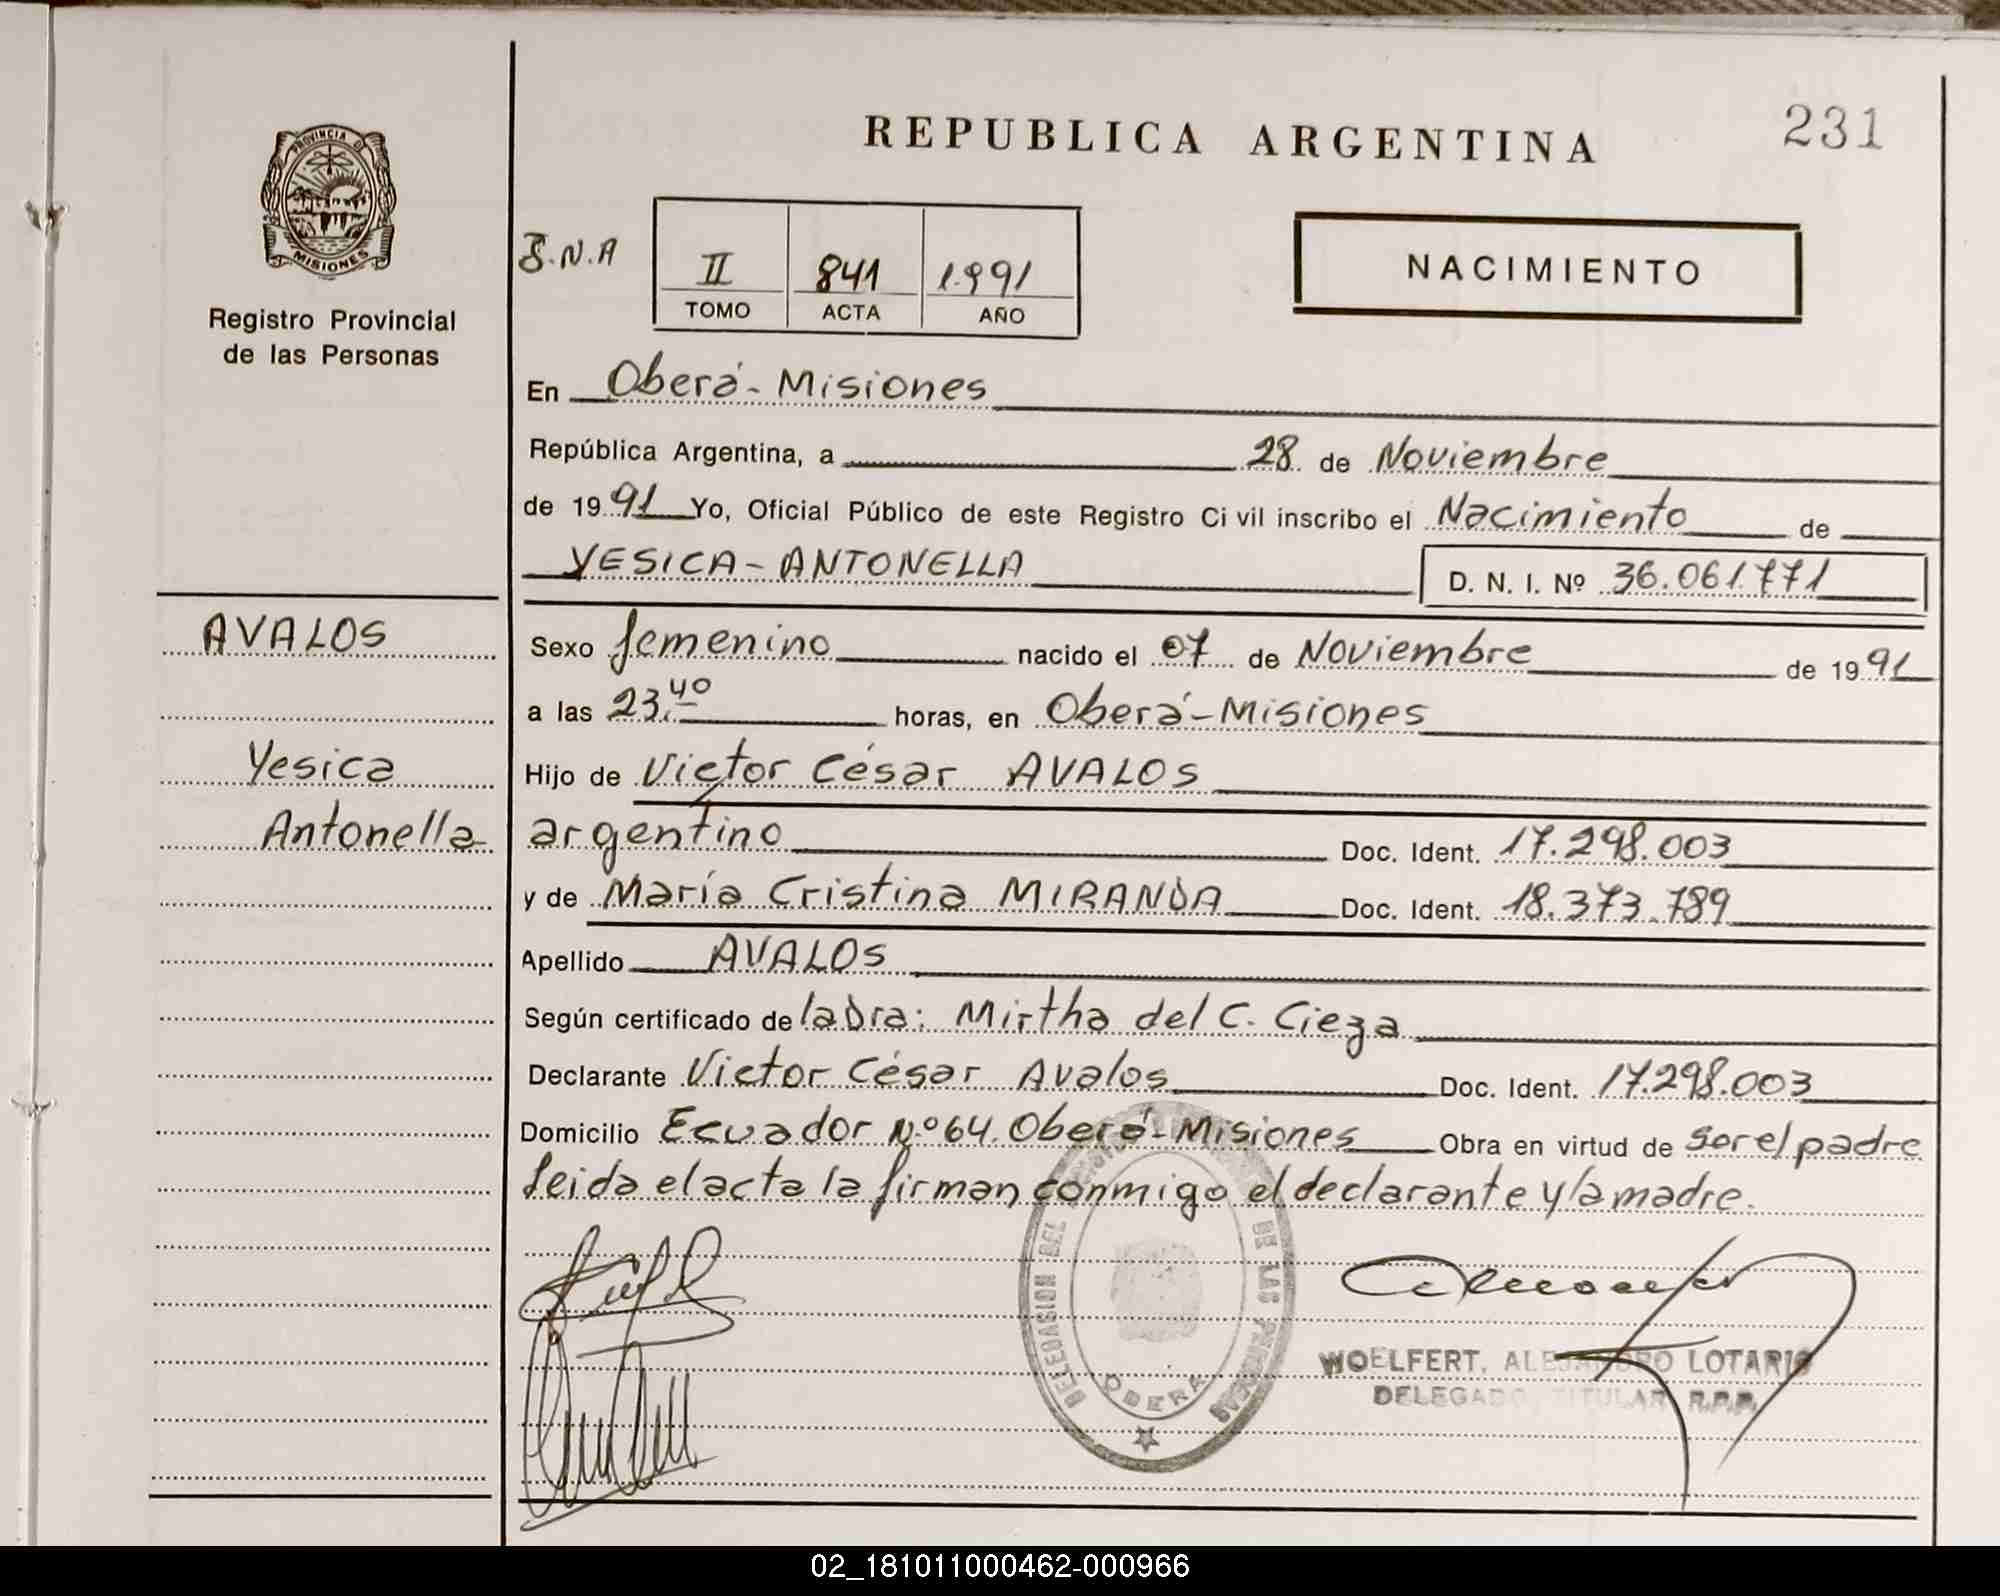 REPUBLICA ARGENTINA
231
PROVINCIA D
MISIONES
Registro Provincial
de las Personas
S.N.A
II 841 1.991
TOMO ACTA AÑO
NACIMIENTO
En Oberá - Misiones
República Argentina, a 28 de Noviembre
de 1991 Yo, Oficial Público de este Registro Ci vil inscribo el Nacimiento de
YESICA - ANTONELLA D. N. I. Nº 36.061.771
AVALOS
Yesica
Antonella
Sexo femenino nacido el 07 de Noviembre de 1991
a las 23.40 horas, en Oberá - Misiones
Hijo de Victor César AVALOS
argentino Doc. Ident. 17.298.003
y de María Cristina MIRANDA Doc. Ident. 18.373.789
Apellido AVALOS
Según certificado de la Dra: Mirtha del C. Cieza
Declarante Victor César Avalos Doc. Ident. 17.298.003
Domicilio Ecuador Nº 64. Oberá - Misiones Obra en virtud de ser el padre
leida el acta la firman conmigo el declarante y la madre.
DELEGACION DEL DE LAS PERSONAS
OBERA
WOELFERT, ALEJANDRO LOTARIO
DELEGADO TITULAR R.P.P.
02_181011000462-000966